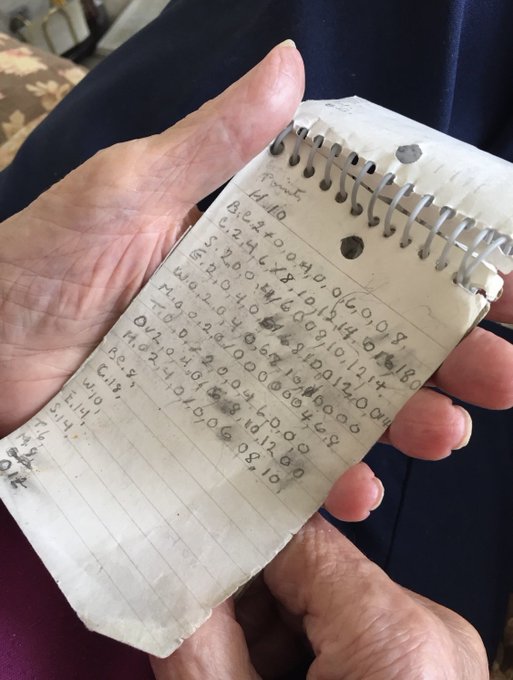 Points
H.10
B.e.2+0,0,4,0,0,6,0,0,8.
C.2,4,6,8,10,12,14,0,16,18,0
S.2,0,0,4/6,0,0,8,10,12,14.
E.2,0,4,0,6,8,10,0,12,0,0,14
W.0,2,0,4,0,6,8,10,0,0,0,0
M.0,0,2,0/0,0,0,0,0,0,4,6,8
T.0,0,2,0,0,4,6,0,0,0
OV2,0,4,0/6,8,10,12,0,0
H.0,2,4,0/0,0,6,0,8,10
Be.8,
C.18,
W.10
E.14,
S.14,
T.6
M.8